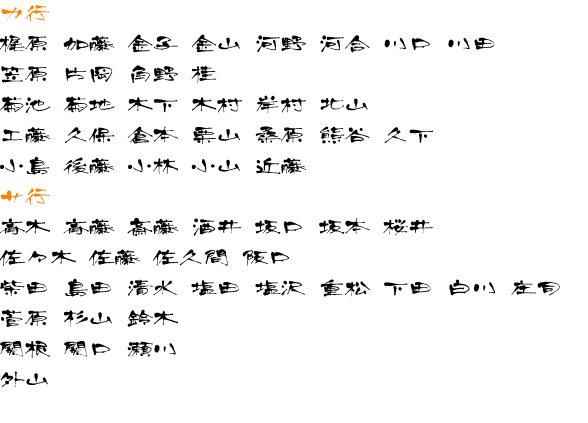 カ行
梶原 加藤 金子 金山 河野 河合 川口 川田
笠原 片岡 角野 桂
菊池 菊地 木下 木村 岸村 北山
工藤 久保 倉本 栗山 桑原 熊谷 久下
小島 後藤 小林 小山 近藤
サ行
斉木 斉藤 斎藤 酒井 坂口 坂本 桜井
佐々木 佐藤 佐久間 阪口
柴田 島田 清水 塩田 塩沢 重松 下田 白川 庄司
菅原 杉山 鈴木
関根 関口 瀬川
外山